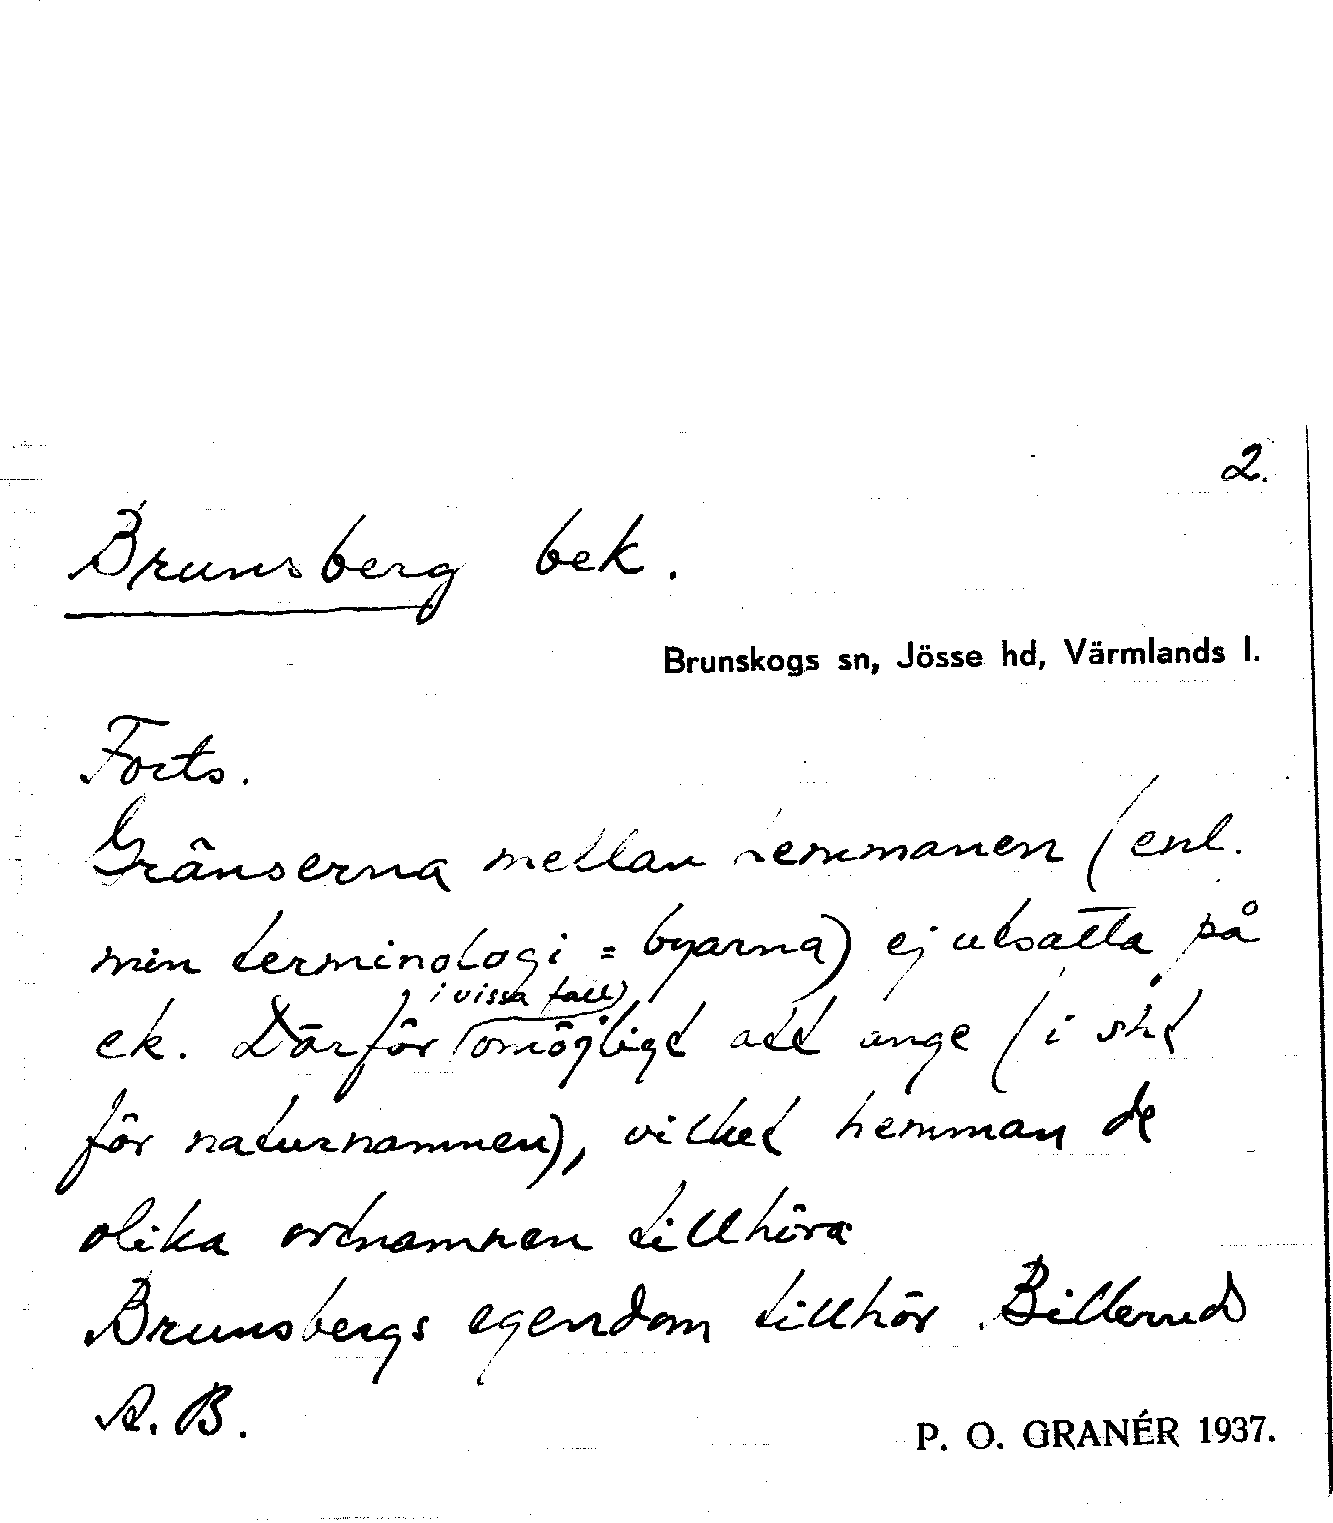 2.
Brunsberg bek.
Brunskogs sn, Jösse hd, Värmlands l.
Forts.
Gränserna mellan hemmanen (enl.
min terminologi = byarna) ej utsatta på
i vissa fall)
ek. Därför (omöjligt att ange (i sht
för naturnamnen), vilket hemman de
olika ortnamnen tillhöra
Brunsbergs egendom tillhör Billeruds
A. B.
P. O. GRANÉR 1937.